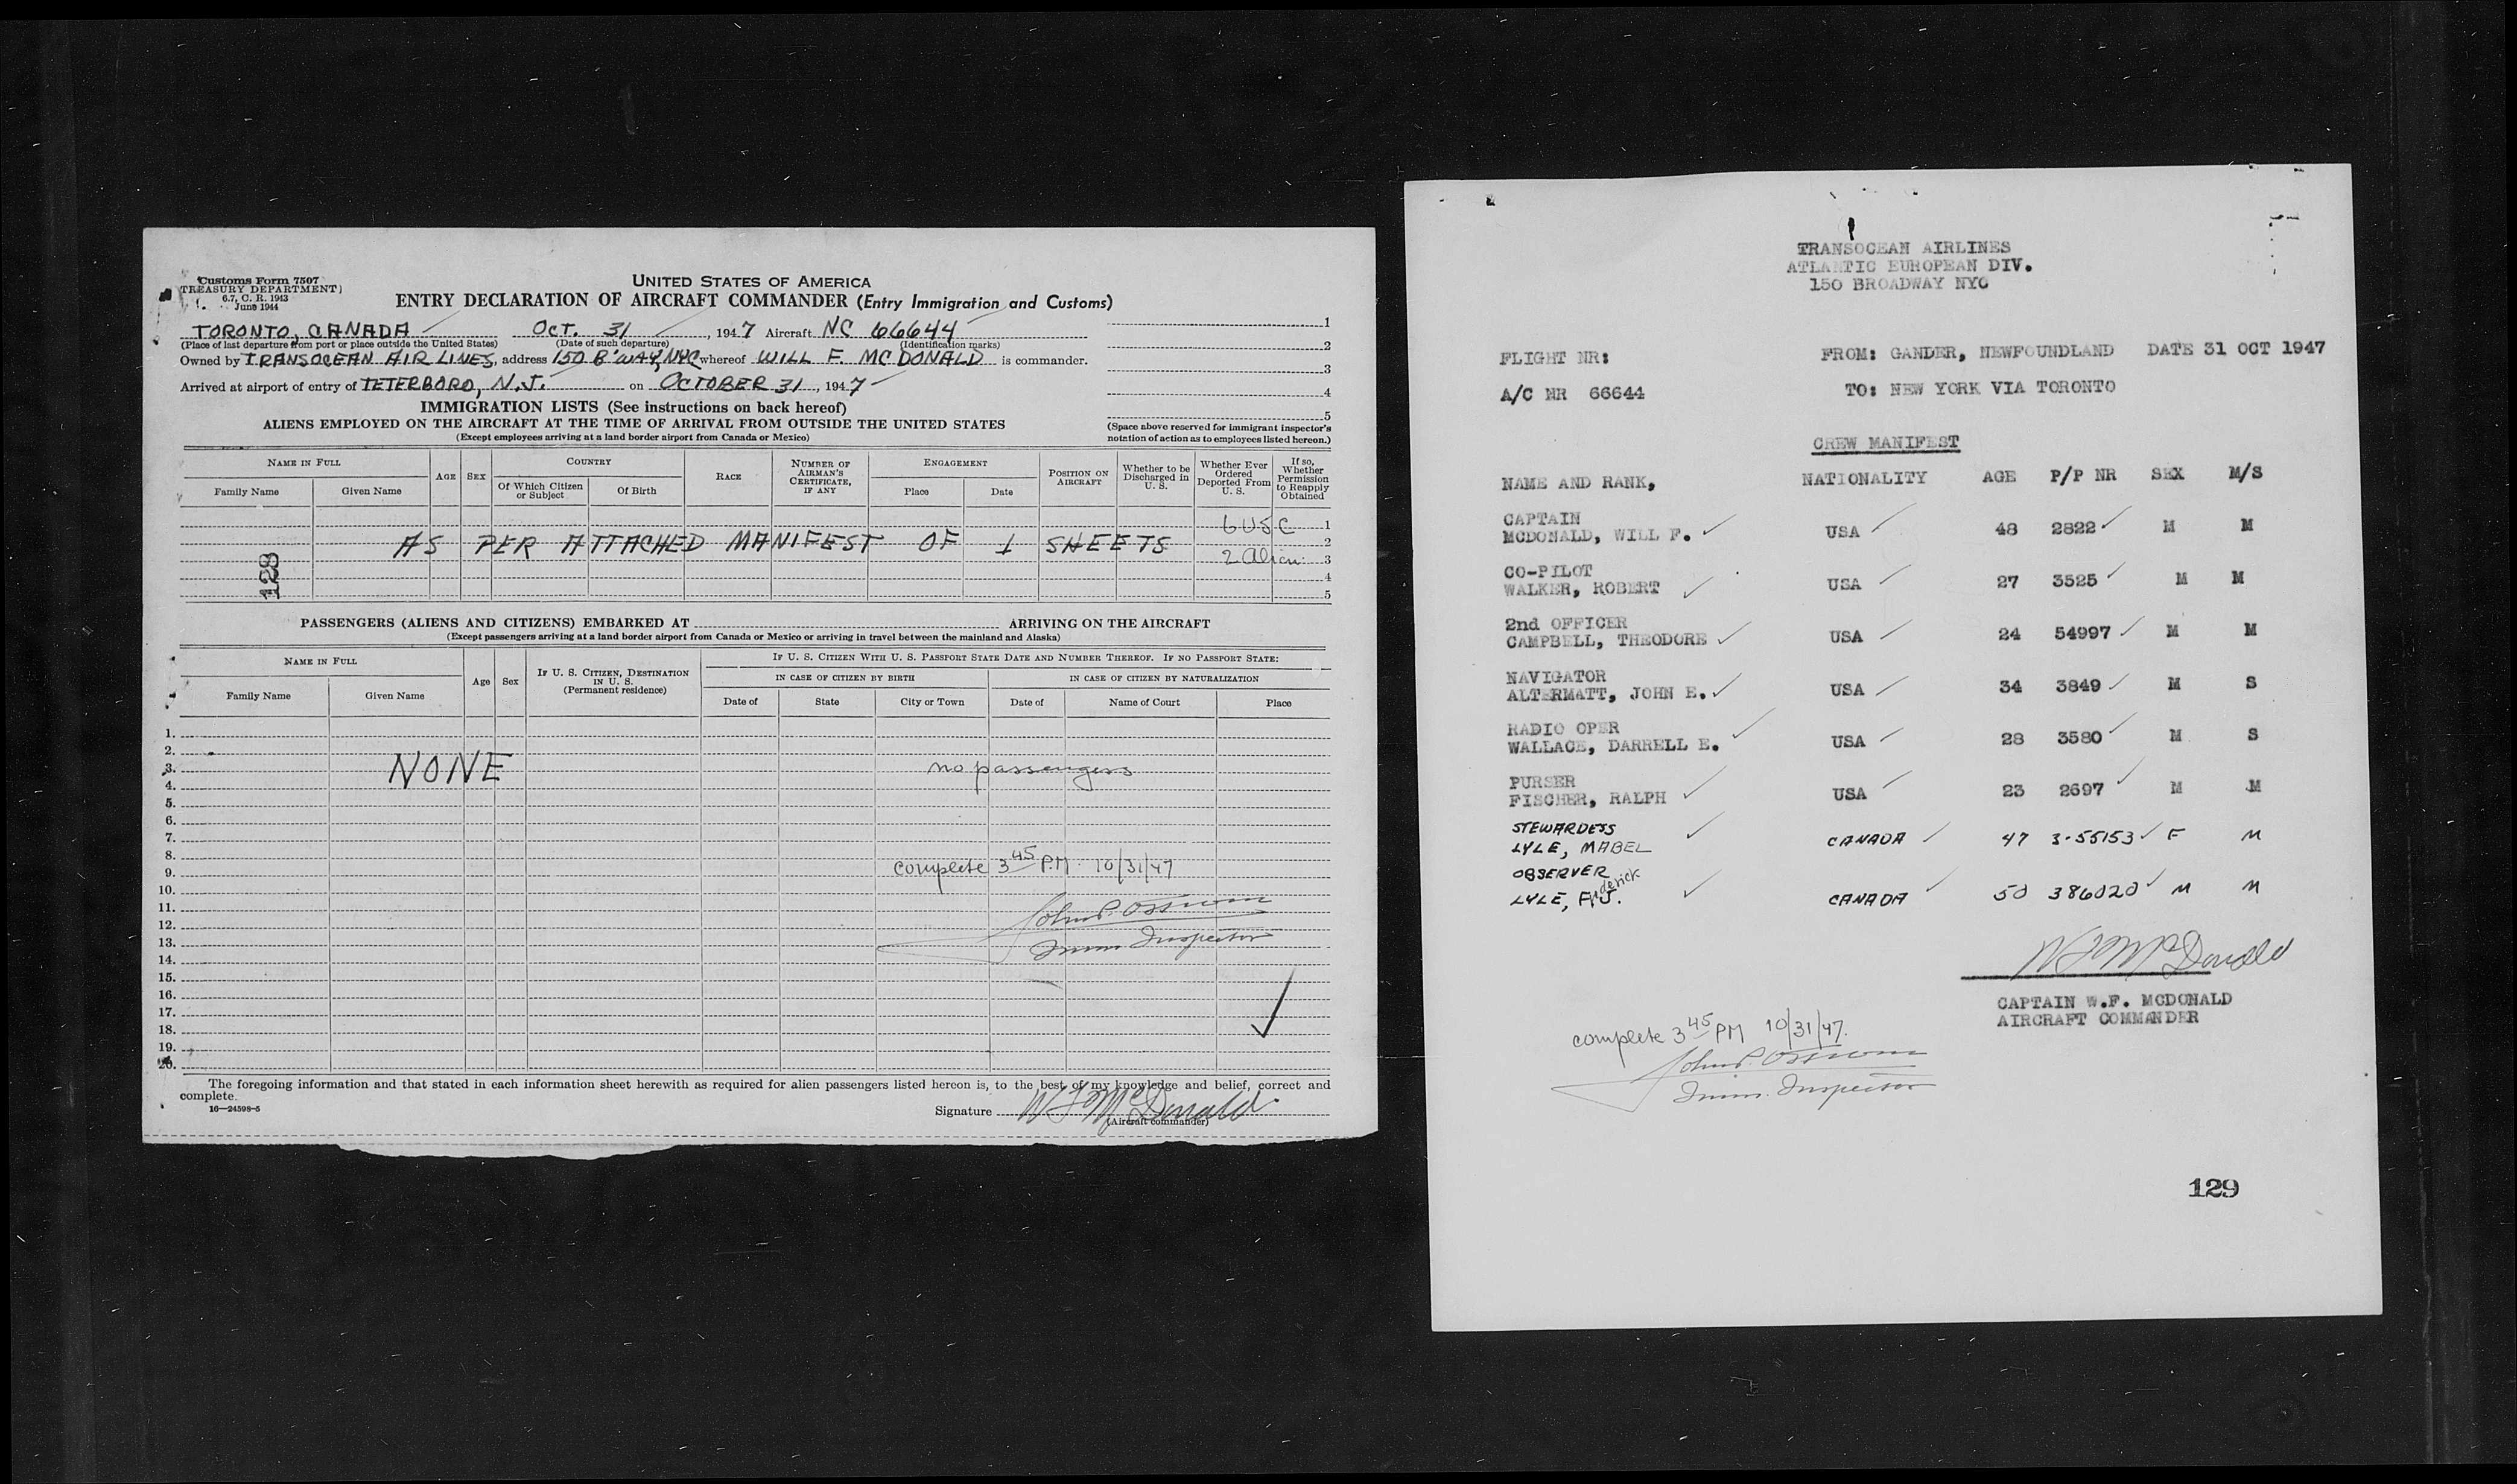 Customs Form 7507
TREASURY DEPARTMENT
6.7, C. R. 1943
June 1944
UNITED STATES OF AMERICA
ENTRY DECLARATION OF AIRCRAFT COMMANDER (Entry Immigration and Customs)
TORONTO, CANADA OCT. 31, 1947 Aircraft NC 66644
(Place of last departure from port or place outside the United States) (Date of such departure) (Identification marks)
Owned by TRANSOCEAN AIR LINES, address 150 B'WAY, NYC whereof WILL F. MC DONALD is commander.
Arrived at airport of entry of TETERBORO, N.J. on OCTOBER 31, 1947
1
2
3
4
5
(Space above reserved for immigrant inspector's notation of action as to employees listed hereon.)
IMMIGRATION LISTS (See instructions on back hereof)
ALIENS EMPLOYED ON THE AIRCRAFT AT THE TIME OF ARRIVAL FROM OUTSIDE THE UNITED STATES
(Except employees arriving at a land border airport from Canada or Mexico)
NAME IN FULL
Family Name
Given Name
AGE
SEX
COUNTRY
Of Which Citizen or Subject
Of Birth
RACE
NUMBER OF AIRMAN'S CERTIFICATE, IF ANY
ENGAGEMENT
Place
Date
POSITION ON AIRCRAFT
Whether to be Discharged in U. S.
Whether Ever Ordered Deported From U. S.
If so, Whether Permission to Reapply Obtained
6 USC 1
AS PER ATTACHED MANIFEST OF 1 SHEETS 2
2 Alien 3
4
5
128
PASSENGERS (ALIENS AND CITIZENS) EMBARKED AT ARRIVING ON THE AIRCRAFT
(Except passengers arriving at a land border airport from Canada or Mexico or arriving in travel between the mainland and Alaska)
NAME IN FULL
Family Name
Given Name
Age
Sex
IF U. S. CITIZEN, DESTINATION IN U. S.
(Permanent residence)
IF U. S. CITIZEN WITH U. S. PASSPORT STATE DATE AND NUMBER THEREOF. IF NO PASSPORT STATE:
IN CASE OF CITIZEN BY BIRTH
IN CASE OF CITIZEN BY NATURALIZATION
Date of
State
City or Town
Date of
Name of Court
Place
1.
2.
3. NONE no passengers
4.
5.
6.
7.
8.
9. complete 3 45 P.M. 10/31/47
10.
11.
12.
13. Imm Inspector
14.
15.
16.
17.
18.
19.
20.
The foregoing information and that stated in each information sheet herewith as required for alien passengers listed hereon is, to the best of my knowledge and belief, correct and
complete.
16—24598-5
Signature W F McDonald
(Aircraft commander)
TRANSOCEAN AIRLINES
ATLANTIC EUROPEAN DIV.
150 BROADWAY NYC
FLIGHT NR: FROM: GANDER, NEWFOUNDLAND DATE 31 OCT 1947
A/C NR 66644 TO: NEW YORK VIA TORONTO
CREW MANIFEST
NAME AND RANK, NATIONALITY AGE P/P NR SEX M/S
CAPTAIN
MCDONALD, WILL F. USA 48 2822 M M
CO-PILOT
WALKER, ROBERT USA 27 3525 M M
2nd OFFICER
CAMPBELL, THEODORE USA 24 54997 M M
NAVIGATOR
ALTERMATT, JOHN E. USA 34 3849 M S
RADIO OPER
WALLACE, DARRELL E. USA 28 3580 M S
PURSER
FISCHER, RALPH USA 23 2697 M M
STEWARDESS
LYLE, MABEL CANADA 47 3-55153 F M
OBSERVER
LYLE, Frederick J. CANADA 50 386020 M M
W F McDonald
CAPTAIN W.F. MCDONALD
AIRCRAFT COMMANDER
complete 3 45 PM 10/31/47.
Imm. Inspector
129